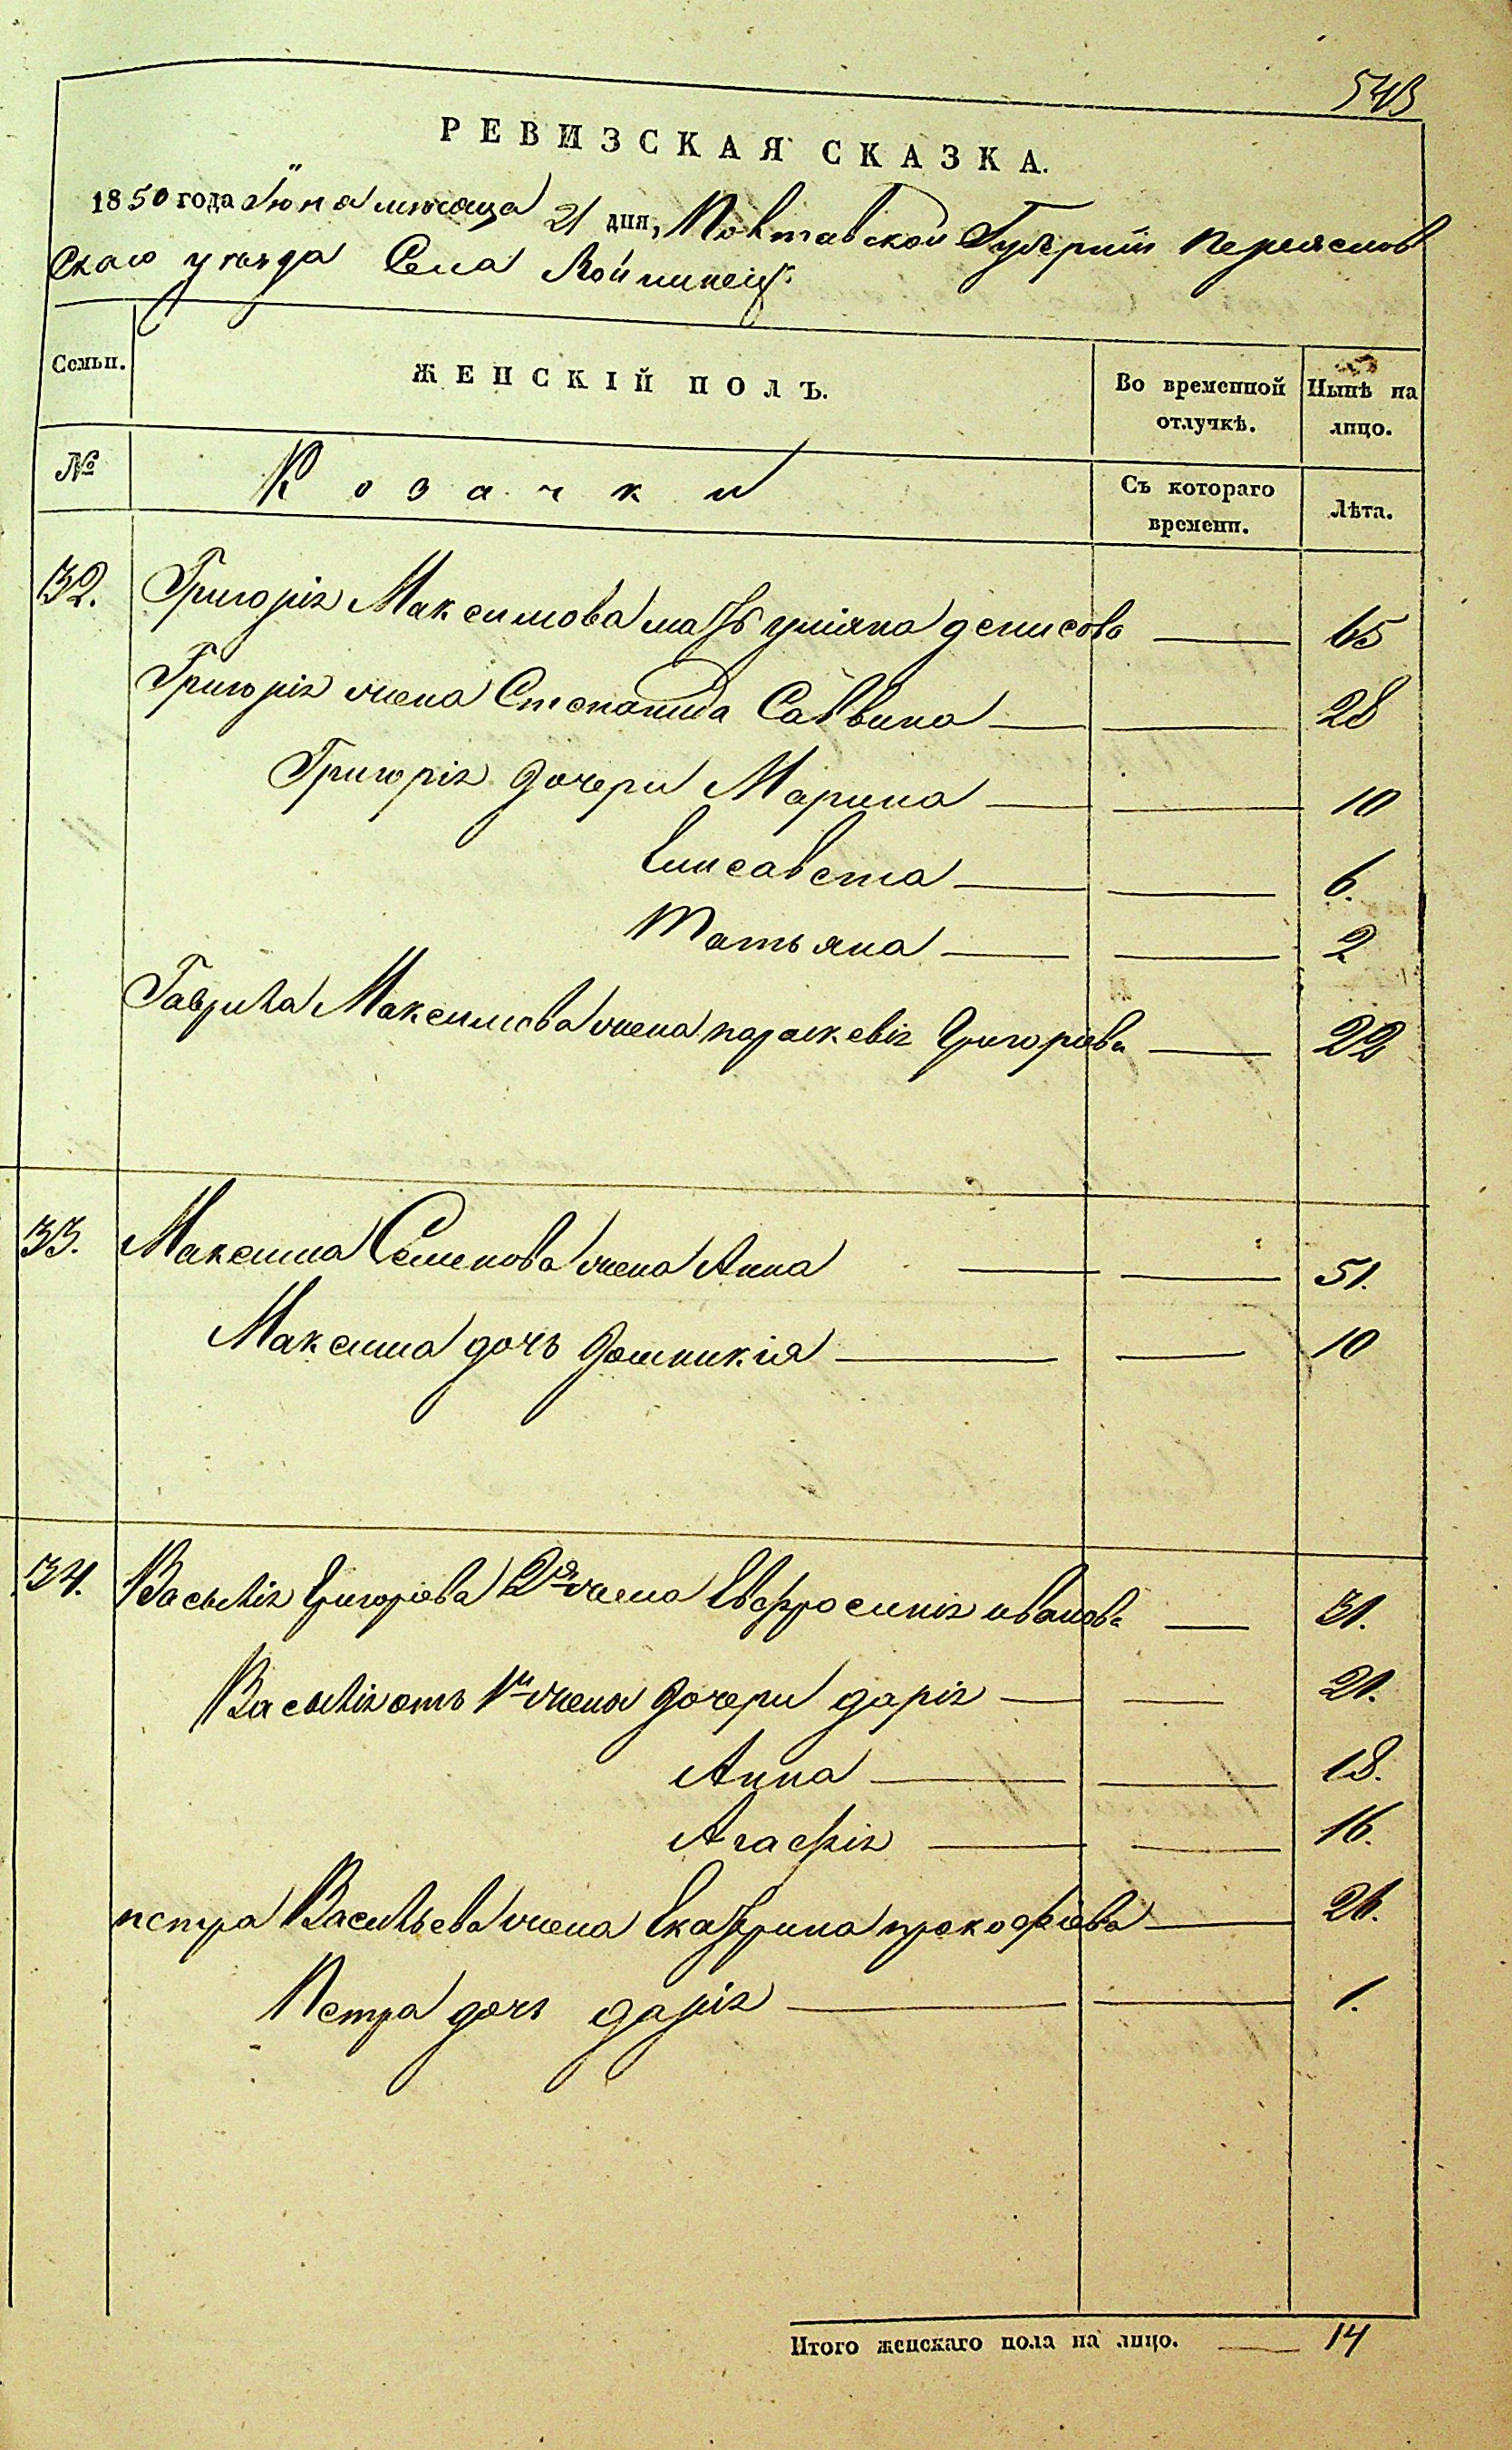 543
РЕВИЗСКАЯ СКАЗКА.
1850 года Іюня месяца 21 дня, Полтавской Губерніи Переяслов
скаго уезда Села Войтовец
Семьи. ЖЕНСКІЙ ПОЛЪ. Во временной отлучкѣ. Нынѣ на лицо.
№ Козачки Съ котораго времени. Лѣта.
32. Григорія Максимова мать уліяна денисова 65
Григорія жена Степанида Саввина 28
Григорія дочери Марина 10
Елисавета 6.
Татьяна 2
Гаврила Максимова жена параскевія Григоріева 22
33. Максима Семенова жена Анна 51.
Максима дочь Домникія 10
34. Василія Григорева 2я жена Евфросинія иванова 31.
Василія отъ 1й жены дочери дарія 21.
Анна 18.
Агафія 16.
петра Васильева жена Екатрина прокофіева 26.
Петра дочь дарія 1.
Итого женскаго пола на лицо. 14